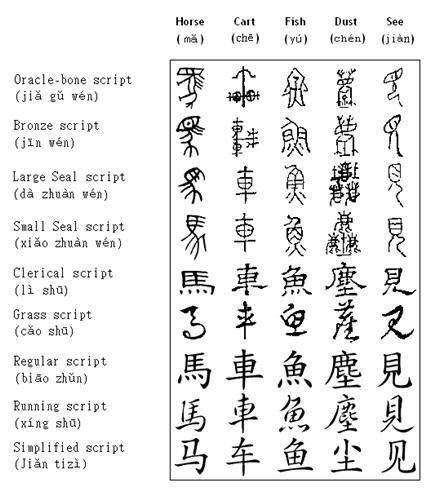 Horse Cart Fish Dust See
(mǎ) (chē) (yú) (chén) (jiàn)
Oracle-bone script
(jiǎ gǔ wén)
Bronze script
(jīn wén)
Large Seal script
(dà zhuàn wén)
Small Seal script
(xiǎo zhuàn wén)
Clerical script
(lì shū)
馬 車 魚 塵 見
Grass script
(cǎo shū)
Regular script
(biāo zhǔn)
馬 車 魚 塵 見
Running script
(xíng shū)
馬 車 魚 塵 見
Simplified script
(Jiǎn tizì)
马 车 鱼 尘 见